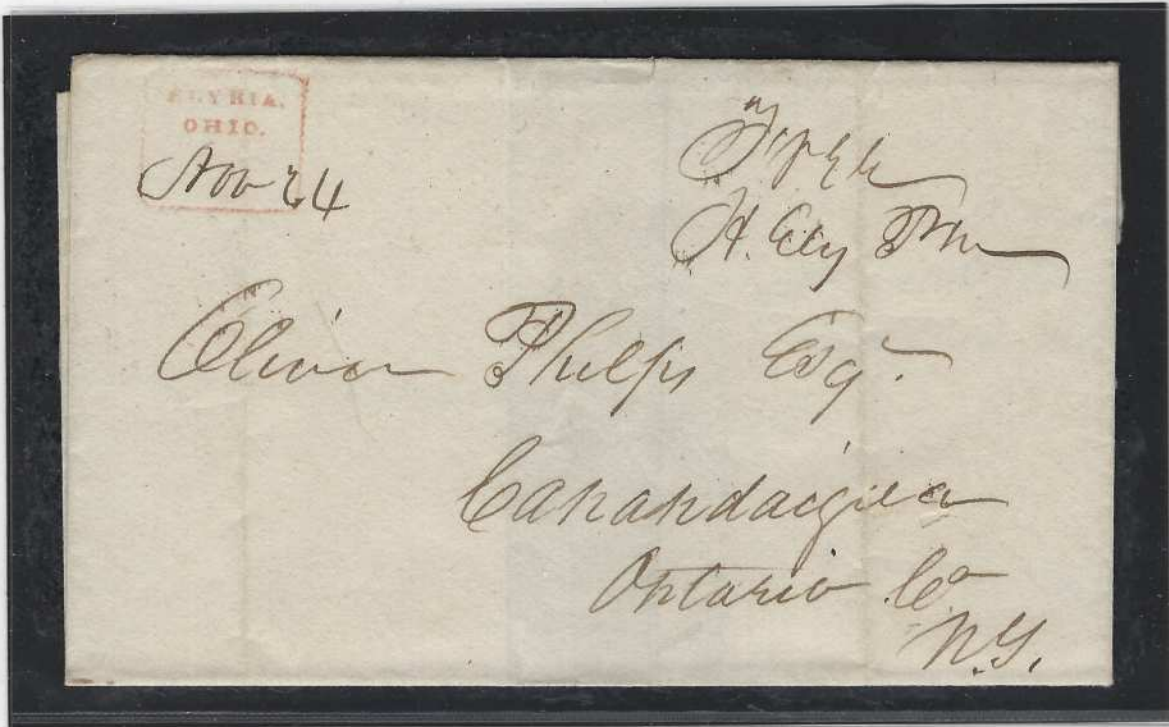 ELYRIA,
OHIO.
Nov 24
Free
H. Ely PM
Oliver Phelps Esqr.
Canandaigua
Ontario Co
N.Y.